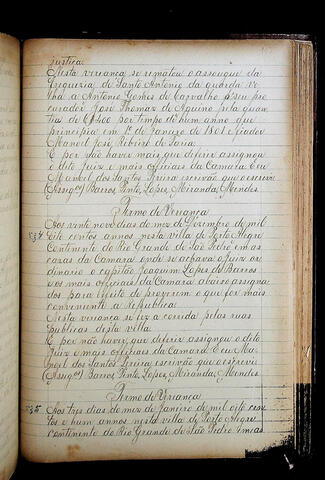 justiça.
Nesta veriança se rematou o assougue da
freguezia de Santo Antonio da guarda Ve
lha a Antonio Gomes de Carvalho p seu pro
curador José Thomas de Aquino pela quan
tia de 6$500 por tempo de hum anno que
principia em 1º de Janeiro de 1801 fiador
Manoel José Ribeiro de Faria.
E por não haver mais que deferir assignou
o dito Juiz e mais officiais da Camara Eeu
Manoel dos Santos Freira escrivão que o escrevi
(Assigos) Barros, Pinto, Lopes, Miranda, Mendes.
Termo de Veriança
Aos vinte nove dias do mez de Dezembro de mil
534
oito centos annos nesta villa de Porto Alegre
Continente do Rio Grande de São Pedro em as
cazas da Camara onde se achava o Juiz or
dinario o capitão Joaquim Lopes de Barros
e os mais officiais da Camara abaixo assigna
dos para effeito de proverem o que for mais
conveniente a Republica.
Nesta veriança se fez a corrida pelas ruas
publicas desta villa.
E por não haver que deferir assignou o dito
Juiz e mais officiais da Camara E eu Ma
noel dos Santos Freira escrivão que o escrevi
(Assigos) Barros, Pinto, Lopes, Miranda, Mendes
Termo de Veriança
535
Aos tres dias do mez de Janeiro de mil oito cen
tos e hum annos nesta villa de Porto Alegre
continente do Rio Grande de São Pedro em as